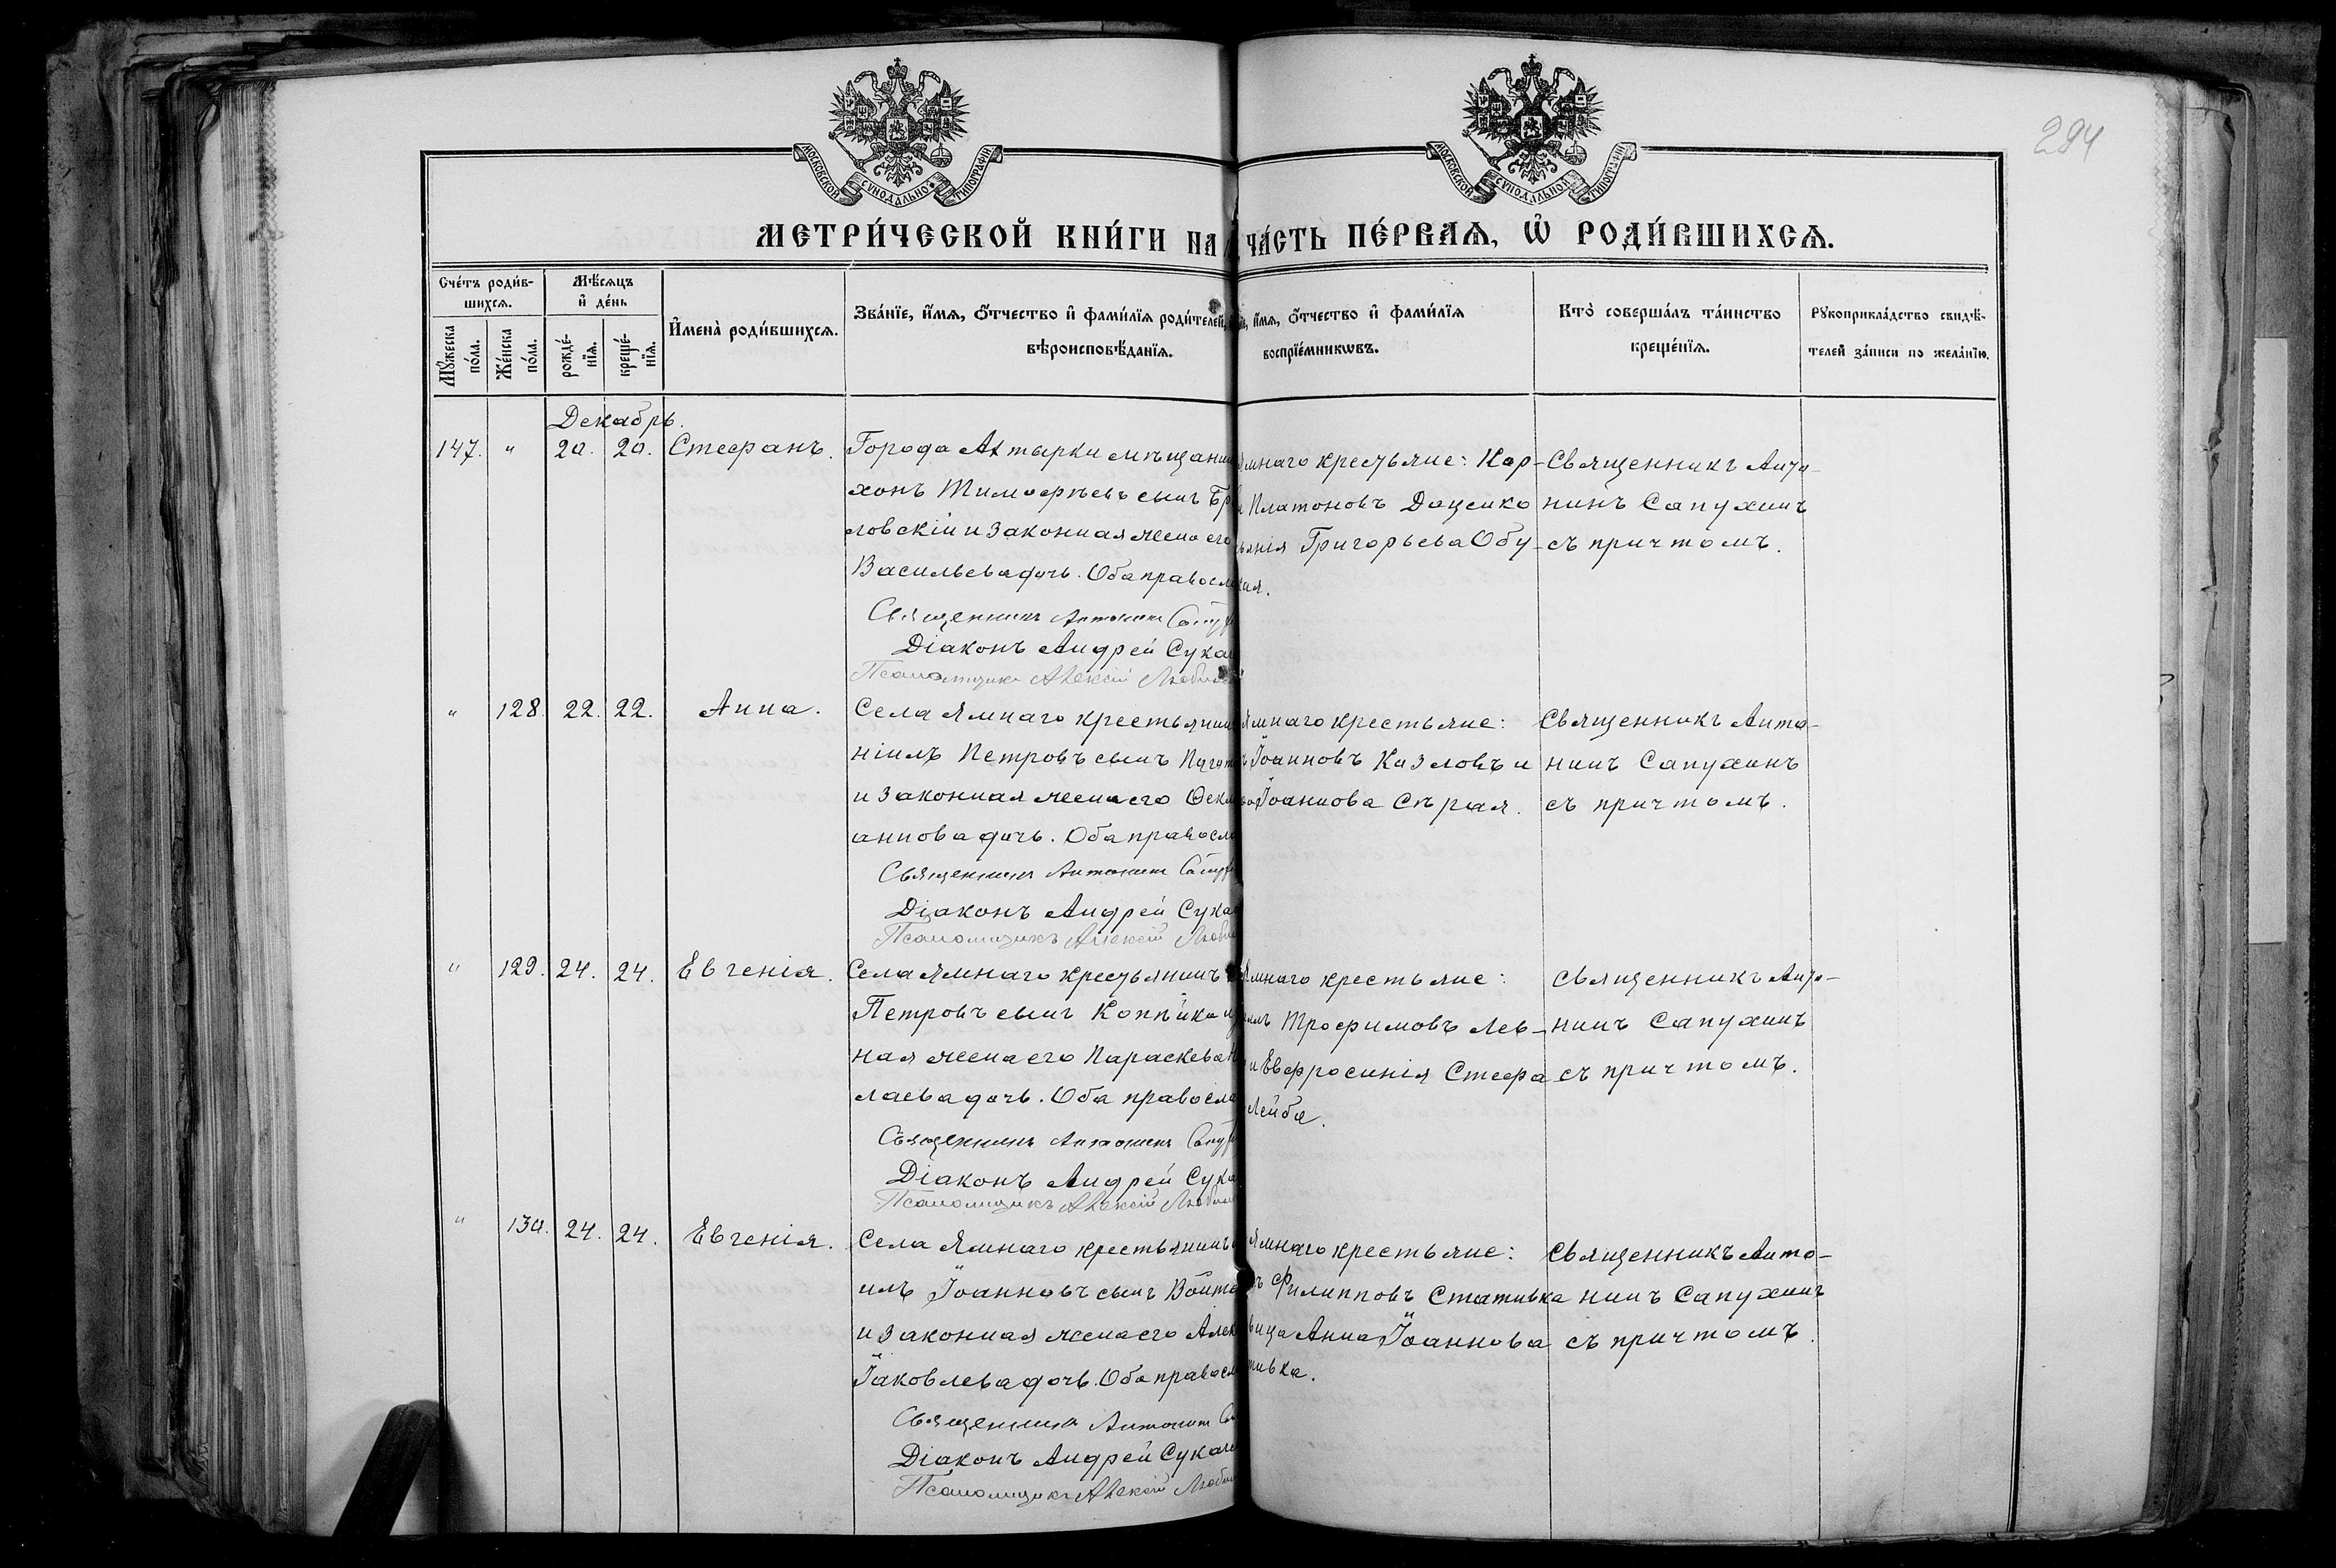 294
МОСКОВСКОЙ СѴНОДАЛЬНОЙ ТИПОГРАФІИ
МОСКОВСКОЙ СѴНОДАЛЬНОЙ ТИПОГРАФІИ
МЕТРИ́ЧЕСКОЙ КНИ́ГИ НА
ЧА́СТЬ ПЕ́РВАѦ, Ѡ҆ РОДИ́ВШИХСѦ.
Сче́тъ роди́в-
шихсѧ.
Мꙋ́жеска
по́ла.
Же́нска
по́ла.
Мѣ́сѧцъ
и҆ де́нь
рожде́-
нїѧ.
креще́-
нїѧ.
И҆мена̀ роди́вшихсѧ.
Зва́нїе, и҆́мѧ, ѻ҆́тчество и҆ фами́лїѧ роди́телей,
вѣроисповѣ́данїѧ.
и҆́мѧ, ѻ҆́тчество и҆ фами́лїѧ
воспрїе́мникѡвъ.
Кто̀ соверша́лъ та́инство
креще́нїѧ.
Рꙋкоприкла́дство свидѣ́-
телей за́писи по жела́нїю.
Декабрь.
147. " 20. 20. Стефанъ.
Города Ахтырки мѣщанин
хонъ Тимофѣевъ сынъ Бр
ловскій и законная жена его
Васильева дочь. Оба правосл
Священникъ Антонин Сапу
Діаконъ Андрей Сука
Псаломщикъ Алексій Люби
Ямнаго крестьяне: Кар-
Платоновъ Доценко
Григорьева Обу-
ная.
Священникъ Анто-
нинъ Сапухинъ
съ причтомъ.
" 128. 22. 22. Анна.
Села Ямнаго крестьянин
ніилъ Петровъ сынъ
и законная жена его Ѳекл
аннова дочь. Оба правосл
Священникъ Антонин Сапу
Діаконъ Андрей Сука
Псаломщикъ Алексій Люби
Ямнаго крестьяне:
Іоанновъ Козловъ и
Іоаннова Сѣрая.
Священникъ Анто-
нинъ Сапухинъ
съ причтомъ.
" 129. 24. 24. Евгенія.
Села Ямнаго крестьянинъ
Петровъ сынъ Копѣйка и
ная жена его Параскева Н
лаева дочь. Оба правосла
Священникъ Антонинъ Сапу
Діаконъ Андрей Сука
Псаломщикъ Алексій Любим
Ямнаго крестьяне:
Трофимовъ Лей-
и Евфросинія Стефа
Лейба.
Священникъ Анто-
нинъ Сапухинъ
съ причтомъ.
" 130. 24. 24. Евгенія.
Села Ямнаго крестьянинъ
илъ Іоанновъ сынъ Войто
и законная жена его Алек
Іаковлева дочь. Оба правосл
Священникъ Антонин Са
Діаконъ Андрей Сука
Псаломщикъ Алексій Любим
Ямнаго крестьяне:
ъ Филипповъ Стативка
вица Анна Іоаннова
тивка.
Священникъ Анто-
нинъ Сапухинъ
съ причтомъ.